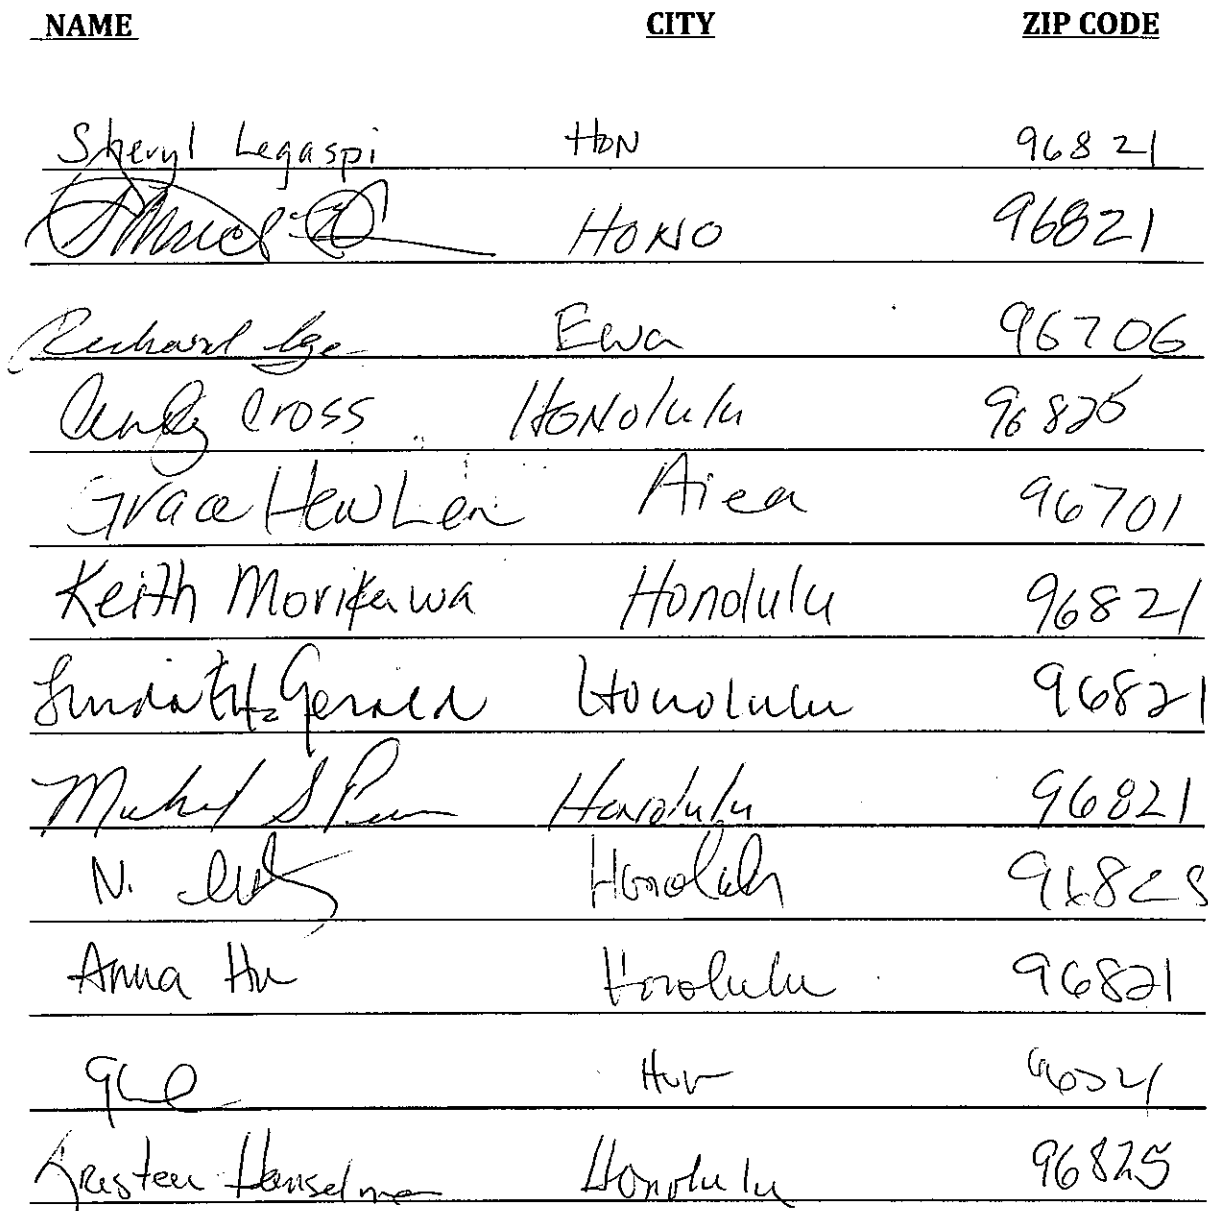 NAME CITY ZIP CODE
Sheryl Legaspi HON 96821
HONO 96821
Richard Ewa 96706
Cross Honolulu
Grace HewLen Aiea 96701
Keith Morikawa Honolulu 96821
Linda FitzGerald Honolulu 96821
Michael S Honolulu 96821
N. Honolulu
Anna Hu Honolulu 96821
Hon
Kristen Hanselman Honolulu 96825